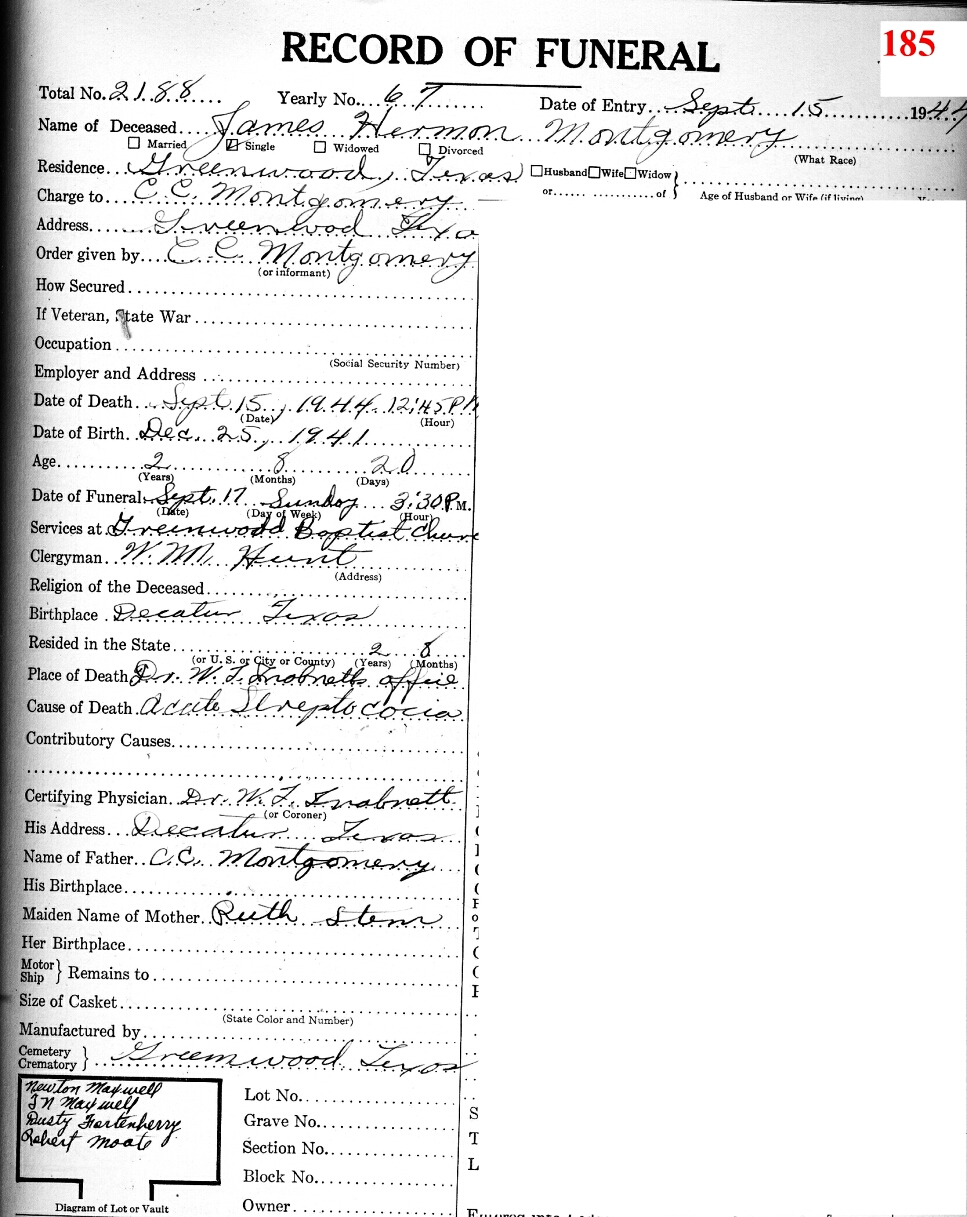 185
RECORD OF FUNERAL
Total No. 2188 Yearly No. 67 Date of Entry Sept. 15 1944
Name of Deceased James Hermon Montgomery
Married Single Widowed Divorced (What Race)
Residence Greenwood, Texas Husband Wife Widow
or of Age of Husband or Wife (if living)
Charge to C.C. Montgomery
Address Greenwood Texa
Order given by C C Montgomery
(or informant)
How Secured
If Veteran, State War
Occupation
(Social Security Number)
Employer and Address
Date of Death Sept 15, 1944 12:45 P.M
(Date) (Hour)
Date of Birth Dec. 25, 1941
Age 2 8 20
(Years) (Months) (Days)
Date of Funeral Sept. 17 Sunday 3:30 P.M.
(Date) (Day of Week) (Hour)
Services at Greenwood Baptist Churc
Clergyman W.M. Hunt
(Address)
Religion of the Deceased
Birthplace Decatur Texas
Resided in the State 2 8
(or U. S. or City or County) (Years) (Months)
Place of Death Dr. W. T. Inabnetts office
Cause of Death Acute Streptococia
Contributory Causes
Certifying Physician Dr. W. T. Inabnett
(or Coroner)
His Address Decatur Texas
Name of Father C.C. Montgomery
His Birthplace
Maiden Name of Mother Ruth
Her Birthplace
Motor Ship } Remains to
Size of Casket
(State Color and Number)
Manufactured by
Cemetery Crematory } Greenwood Texas
Newton Maxwell
Maxwell
Dusty Fortenberry
Robert Moate
Lot No.
Grave No.
Section No.
Block No.
Owner
Diagram of Lot or Vault